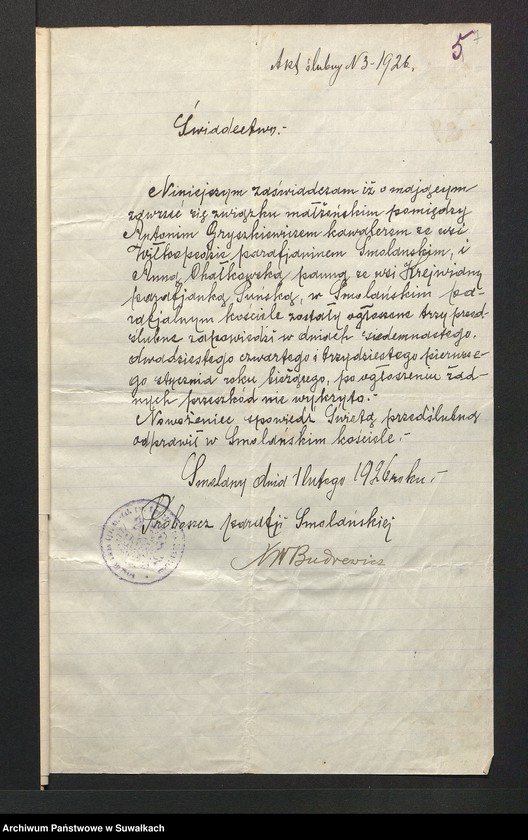 Akt ślubny N 3 - 1926.
5
7
Świadectwo.-
Niniejszym zaświadczam iż o mającym
zawrzeć się związku małżeńskim pomiędzy
Antonim Gryszkiewiczem kawalerem ze wsi
Wiłkopedzie parafjaninem Smolańskim, i
Anną Chałkowską panną ze wsi Krejwiany
parafjanką Puńską, w Smolańskim pa-
rafjalnym kościele zostały ogłoszone trzy przed-
ślubne zapowiedzi w dniach siedemnastego,
dwudziestego czwartego i trzydziestego pierwsze-
go stycznia roku bieżącego, po ogłoszeniu żad-
nych przeszkód nie wykryto.-
Nowożeniec spowiedź Świętą przedślubną
odprawił w Smolańskim kościele.-
Smolany dnia 1 lutego 1926 roku.-
Proboszcz parafji Smolańskiej
Budrewicz
Archiwum Państwowe w Suwałkach